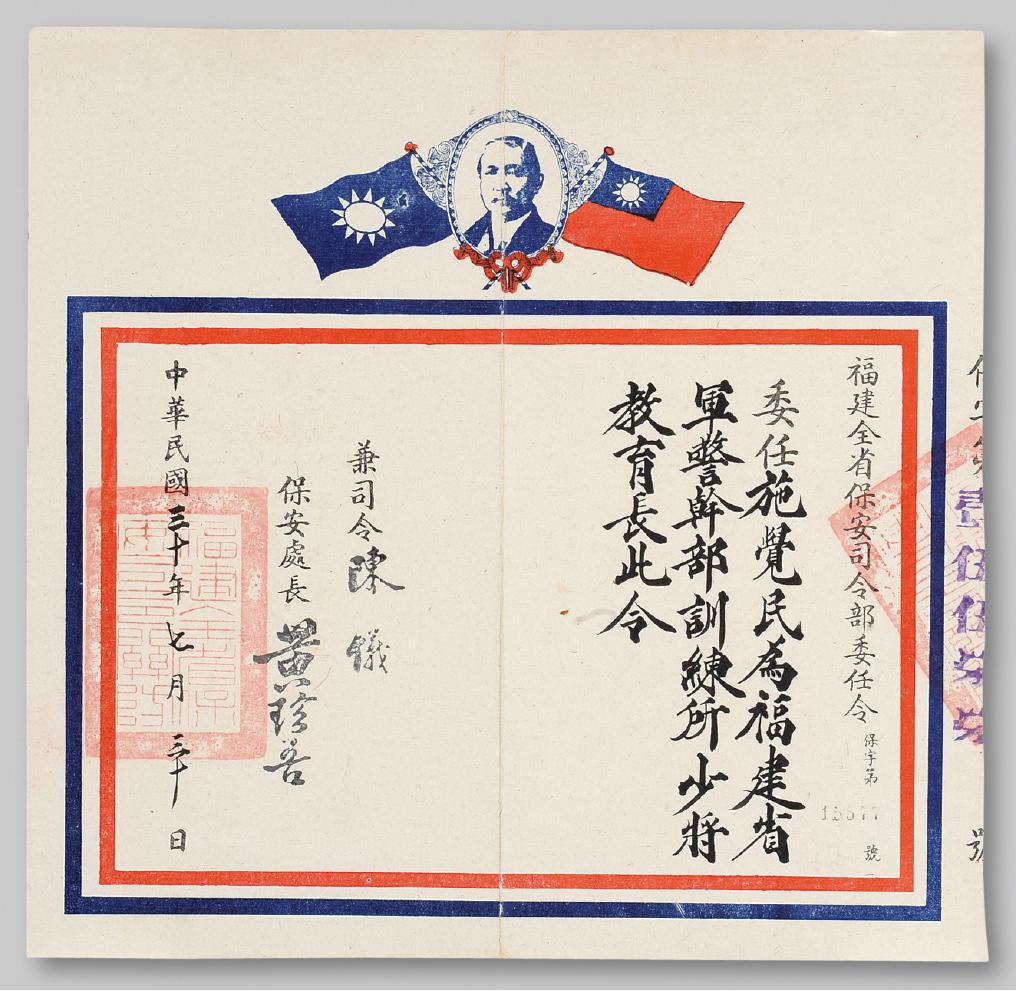 福建全省保安司令部委任令 保字第 15577 號
委任施覺民為福建省
軍警幹部訓練所少將
教育長此令
兼司令陳儀
保安處長黃珍吾
中華民國三十年七月三十日
壹伍伍柒柒